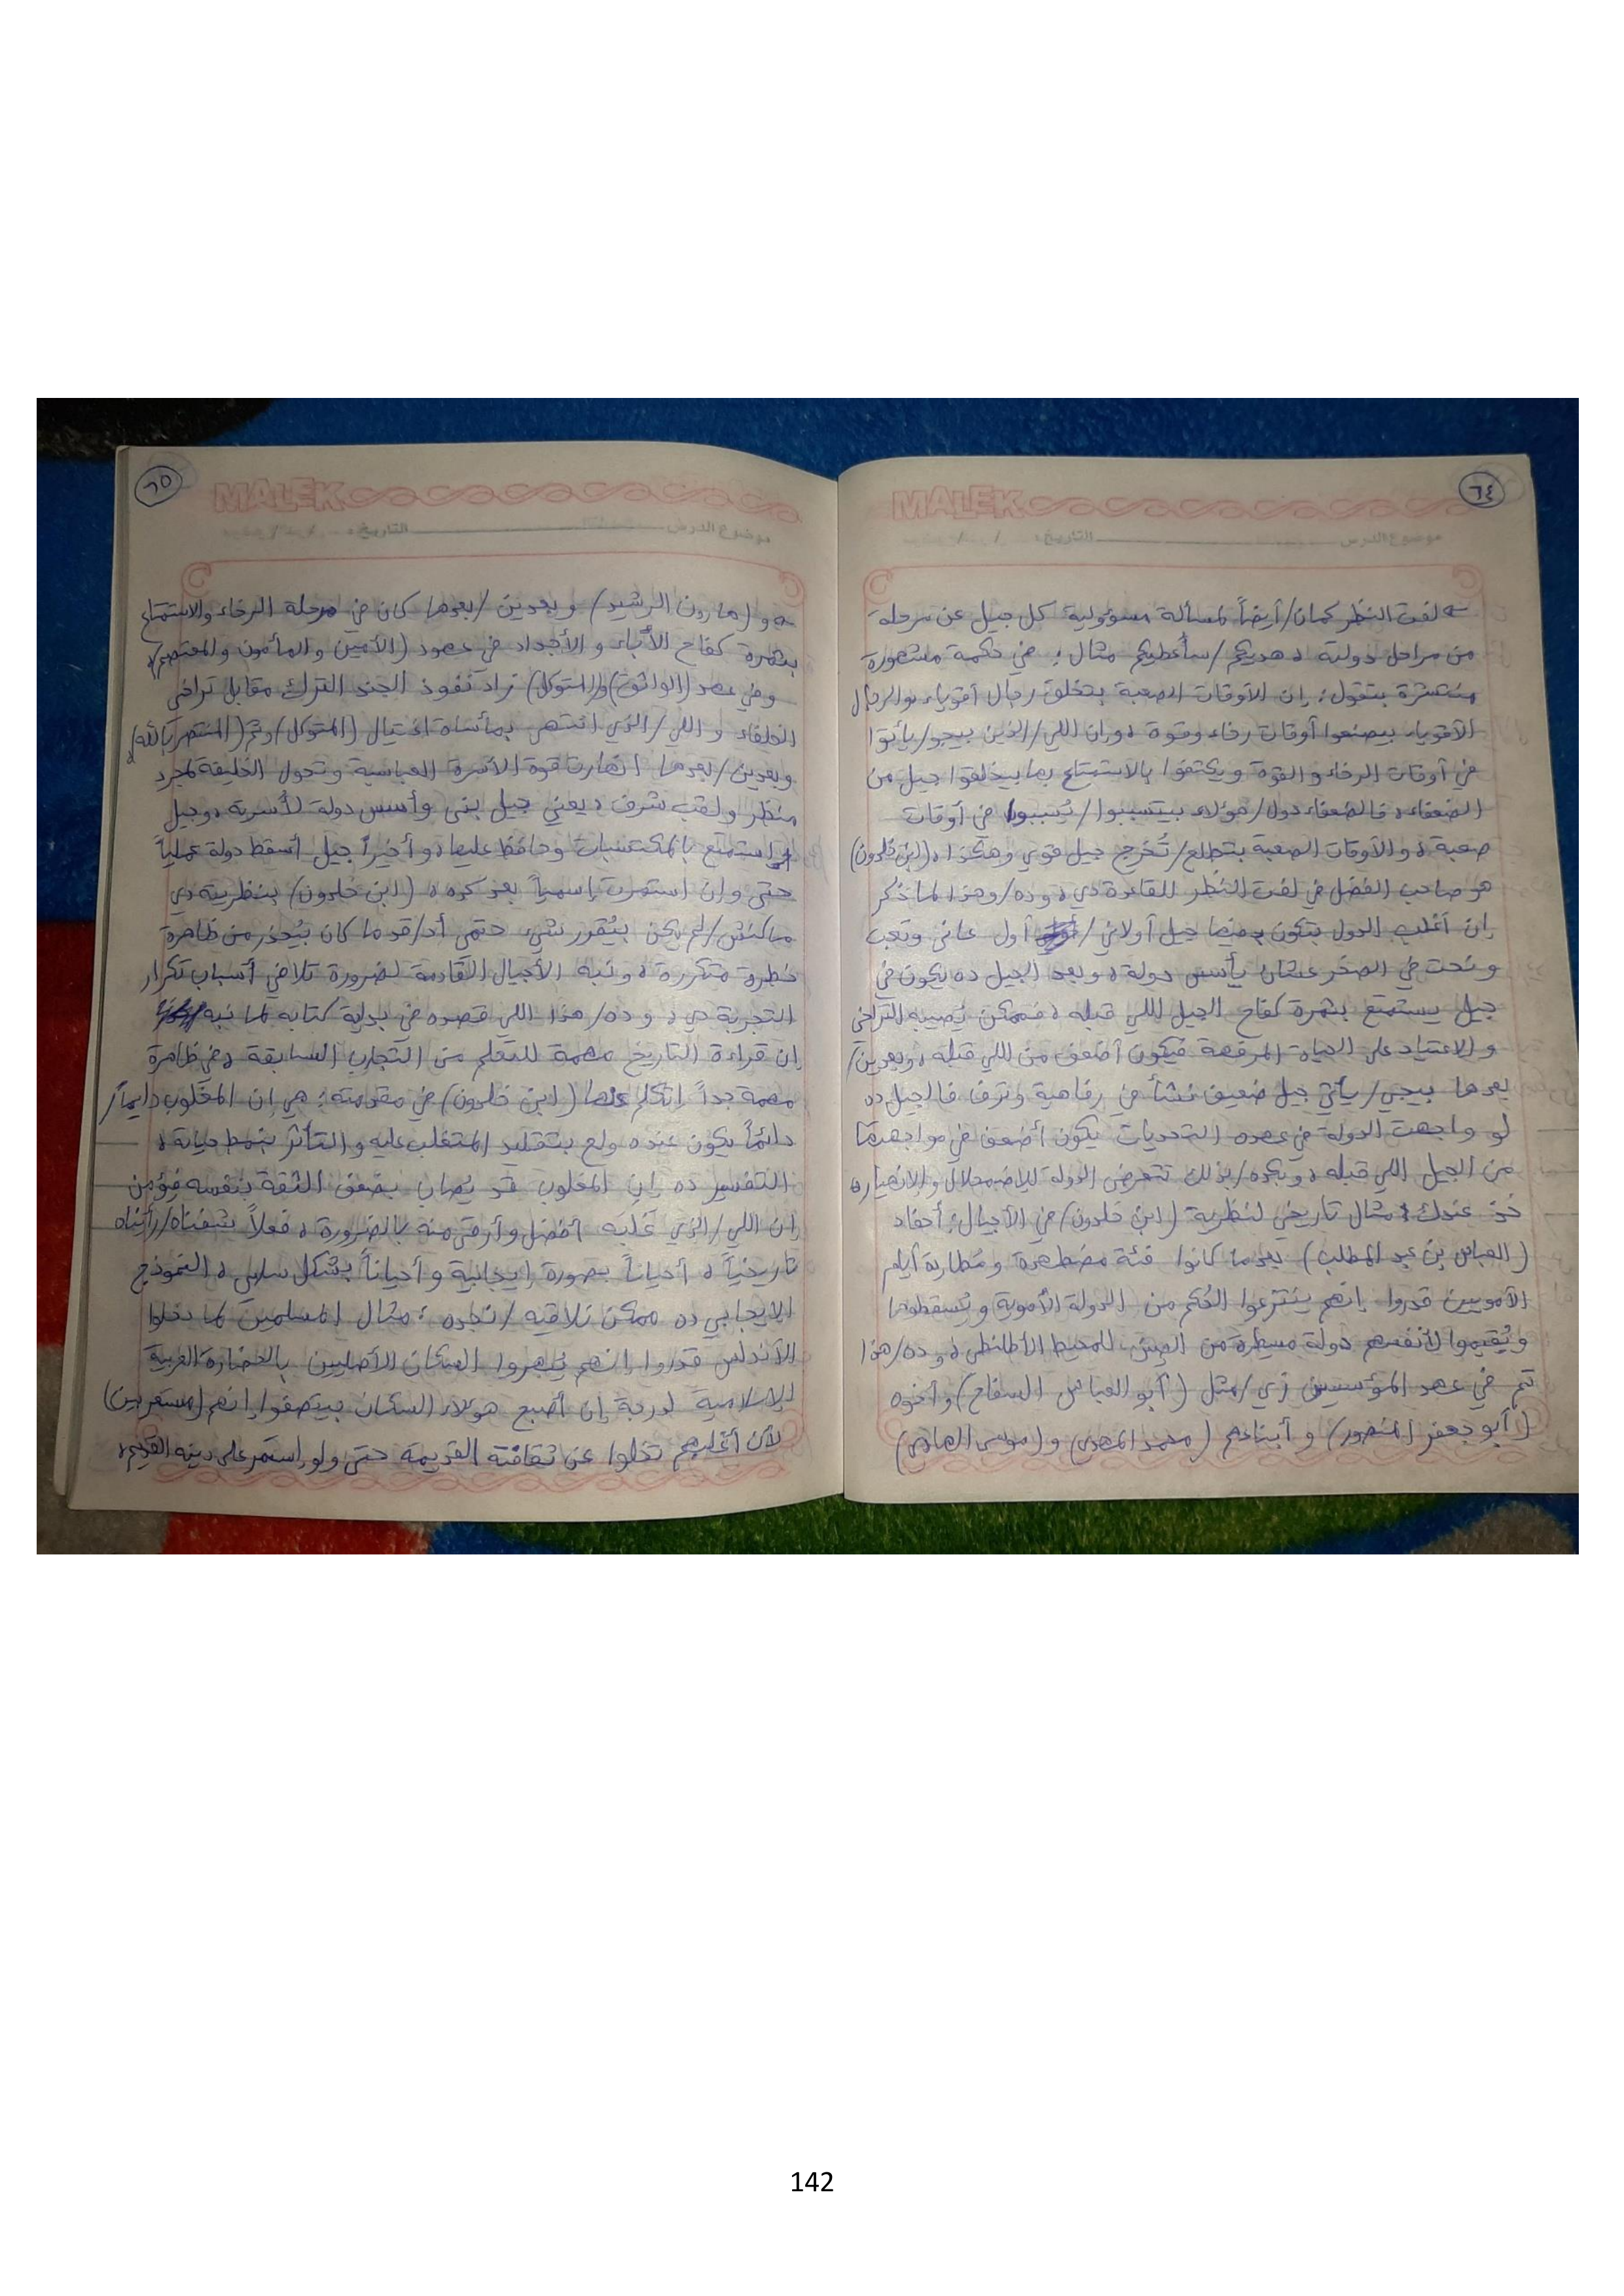 ٦٤
MALEK
موضوع الدرس التاريخ: / /
لفت النظر كمان/أيضاً لمسألة مسؤولية كل جيل عن مرحلة
من مراحل دولته، هديكم/سأعطيكم مثال: في حكمة مشهورة
منتشرة بتقول: إن الأوقات الصعبة بتخلق رجال أقوياء، والرجال
الأقوياء بيصنعوا أوقات رخاء وقوة، وإن اللي/الذين بيجو/يأتوا
في أوقات الرخاء والقوة ويكتفوا بالاستمتاع بها بيخلقوا جيل من
الضعفاء، فالضعفاء دول/هؤلاء بيتسببوا/يُسببوا في أوقات
صعبة، والأوقات الصعبة بتطلع/تُخرج جيل قوي وهكذا، (ابن خلدون)
هو صاحب الفضل في لفت النظر للقاعدة دي، وده/وهذا لما ذكر
إن أغلب الدول بتكون فيها جيل أولاني/أول عانى وتعب
ونحت في الصخر عشان يأسس دولة، وبعد الجيل ده يكون في
جيل يستمتع بثمرة كفاح الجيل اللي قبله، فممكن يُصيبه التراخي
والاعتياد على الحياة المرفهة فيكون أضعف من اللي قبله، وبعدين/
بعدها بيجي/يأتي جيل ضعيف نشأ في رفاهية وترف فالجيل ده
لو واجهت الدولة في عهده التحديات يكون أضعف في مواجهتها
من الجيل اللي قبله، وبكده/بذلك تتعرض الدولة للاضمحلال والانهيار،
خذ عندك مثال تاريخي لنظرية (ابن خلدون) في الأجيال: أحفاد
(العباس بن عبد المطلب) بعدما كانوا فئة مضطهدة ومُطاردة أيام
الأمويين قدروا إنهم ينتزعوا الحُكم من الدولة الأموية ويُسقطوها
ويُقيموا لأنفسهم دولة مسيطرة من الصين للمحيط الأطلنطي، وده/هذا
تم في عهد المؤسسين زي/مثل (أبو العباس السفاح) وأخوه
(أبو جعفر المنصور) وأبناءهم (محمد المهدي) و(موسى الهادي)
٦٥
MALEK
موضوع الدرس التاريخ: / /
و(هارون الرشيد) وبعدين/بعدها كان في مرحلة الرخاء والاستمتاع
بثمرة كفاح الأباء والأجداد في عهود (الأمين والمأمون والمعتصم)،
وفي عهد (الواثق) و(المتوكل) زاد نفوذ الجند الترك مقابل تراخي
الخلفاء واللي/الذي انتهى بمأساة اغتيال (المتوكل) وثم (المنتصر بالله)،
وبعدين/بعدها انهارت قوة الأسرة العباسية وتحول الخليفة لمجرد
منظر ولقب شرف، يعني جيل بنى وأسس دولة لأسرته، وجيل
استمتع بالمكتسبات وحافظ عليها، وأخيراً جيل أسقط دولة عملياً
حتى وإن استمرت إسمياً بعد كده، (ابن خلدون) بنظريته دي
ماكنش/لم يكن بيُقرر شيء حتمي أد/قد ما كان بيُحذر من ظاهرة
خطرة متكررة، ونبه الأجيال القادمة لضرورة تلافي أسباب تكرار
التجربة دي، وده/هذا اللي قصده في بداية كتابه لما نبه
إن قراءة التاريخ مهمة للتعلم من التجارب السابقة، في ظاهرة
مهمة جداً اتكلم عنها (ابن خلدون) في مقدمته: هي إن المغلوب دايماً/
دائماً يكون عنده ولع بتقليد المتغلب عليه والتأثر بنمط حياته،
التفسير ده إن المغلوب قد يُصاب بضعف الثقة بنفسه فيؤمن
إن اللي/الذي غلبه أفضل وأرقى منه بالضرورة، فعلاً شفناه/رأيناه
تاريخياً، أحياناً بصورة إيجابية وأحياناً بشكل سلبي، النموذج
الإيجابي ده ممكن تلاقيه/تجده: مثال المسلمين لما دخلوا
الأندلس قدروا إنهم يُبهروا السكان الأصليين بالحضارة العربية
الإسلامية لدرجة إن أصبح هولاء السكان بيتصفوا إنهم (مستعربين)
لأن أغلبهم تخلوا عن ثقافته القديمة حتى ولو استمر على دينه القديم،
142